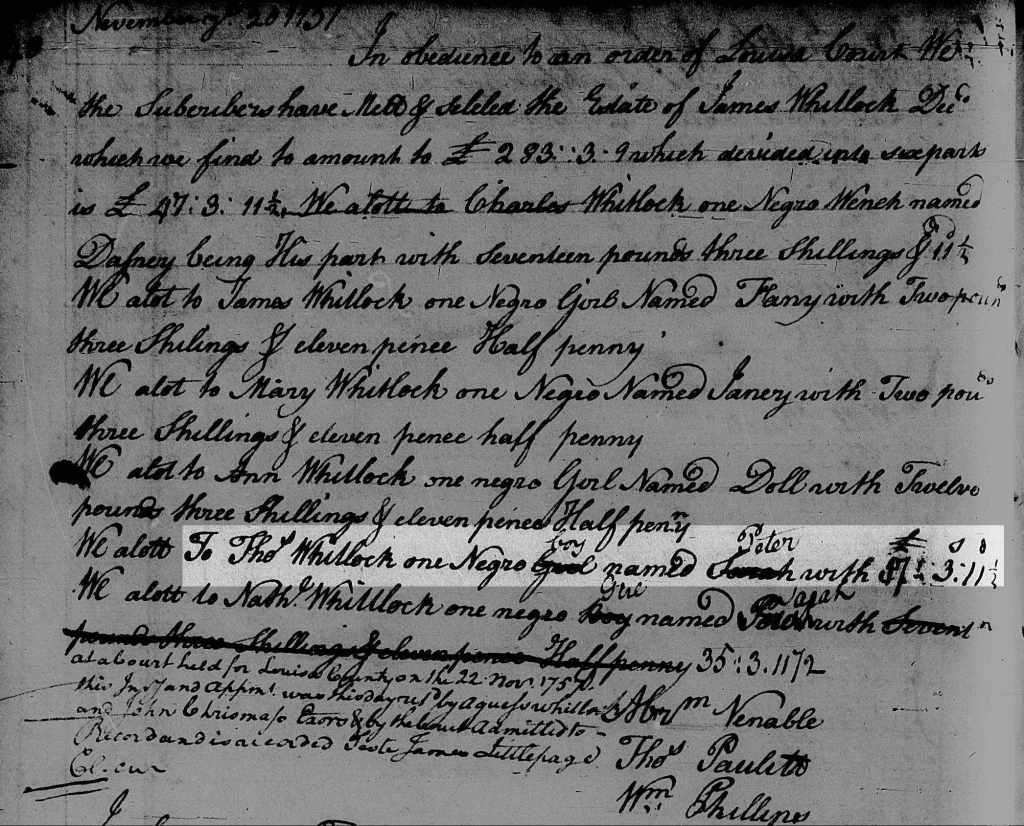 November ye 20 1757
In obedience to an order of Louisa Court We
the Subcribers have Mett & seteled the Estate of James Whitlock Decd
which we find to amount to £ 283::3:9 which devided into six parts
is £ 47:3:11½. We alott to Charles Whitlock one Negro Wench named
Dafney being His part with seventeen pounds three Shillings & 11½
We alot to James Whitlock one Negro Girl Named Fany with Two poun
three Shilings & eleven pence Half penny
We alot to Mary Whitlock one Negro Named Janey with Two pou
three Shillings & eleven pence haff penny
We alot to Ann Whitlock one negro Girl Named Doll with Twelve
pounds three Shillings & eleven pence Half penny
boy Peter £ s d
We alott To Thos Whitlock one Negro Girl named Sarah with 17:3:11½
Girl Sarah
We alott to Nathl Whitlock one negro Boy named Peter with Seventn
pounds three Shilling & eleven pence Haff penny 35:3.11½
at a Court held for Louisa County on the 22 Novr 1757
this and was this day by Whitlock
and John Chrismas Exors & by the Court Admitted to
Record and is recorded Teste James Littlepage
Cl. cur
Abrm Venable
Thos Paulett
Wm Phillips